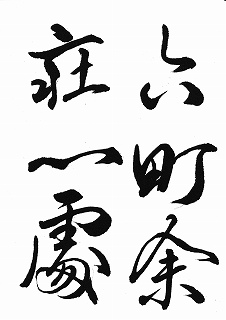 六町余
荘一處